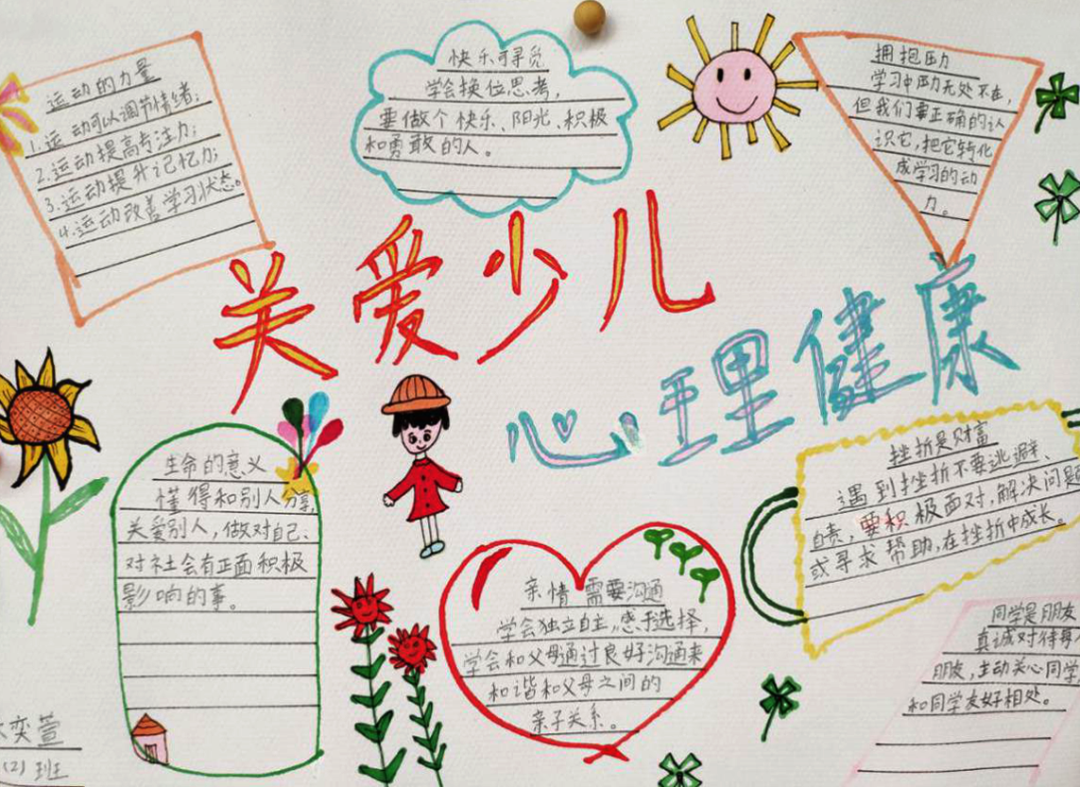 运动的力量
1.运动可以调节情绪；
2.运动提高专注力；
3.运动提升记忆力；
4.运动改善学习状态。
快乐可寻觅
学会换位思考，
要做个快乐、阳光、积极
和勇敢的人。
拥抱压力
学习中压力无处不在，
但我们要正确的认
识它，把它转化
成学习的动
力。
关爱少儿
心理健康
生命的意义
懂得和别人分享，
关爱别人，做对自己、
对社会有正面积极
影响的事。
亲情需要沟通
学会独立自主，感于选择，
学会和父母通过良好沟通来
和谐和父母之间的
亲子关系。
挫折是财富
遇到挫折不要逃避、
自责，要积极面对，解决问题
或寻求帮助，在挫折中成长。
同学是朋友
真诚对待每
朋友，主动关心同学
和同学友好相处。
奕萱
(2)班